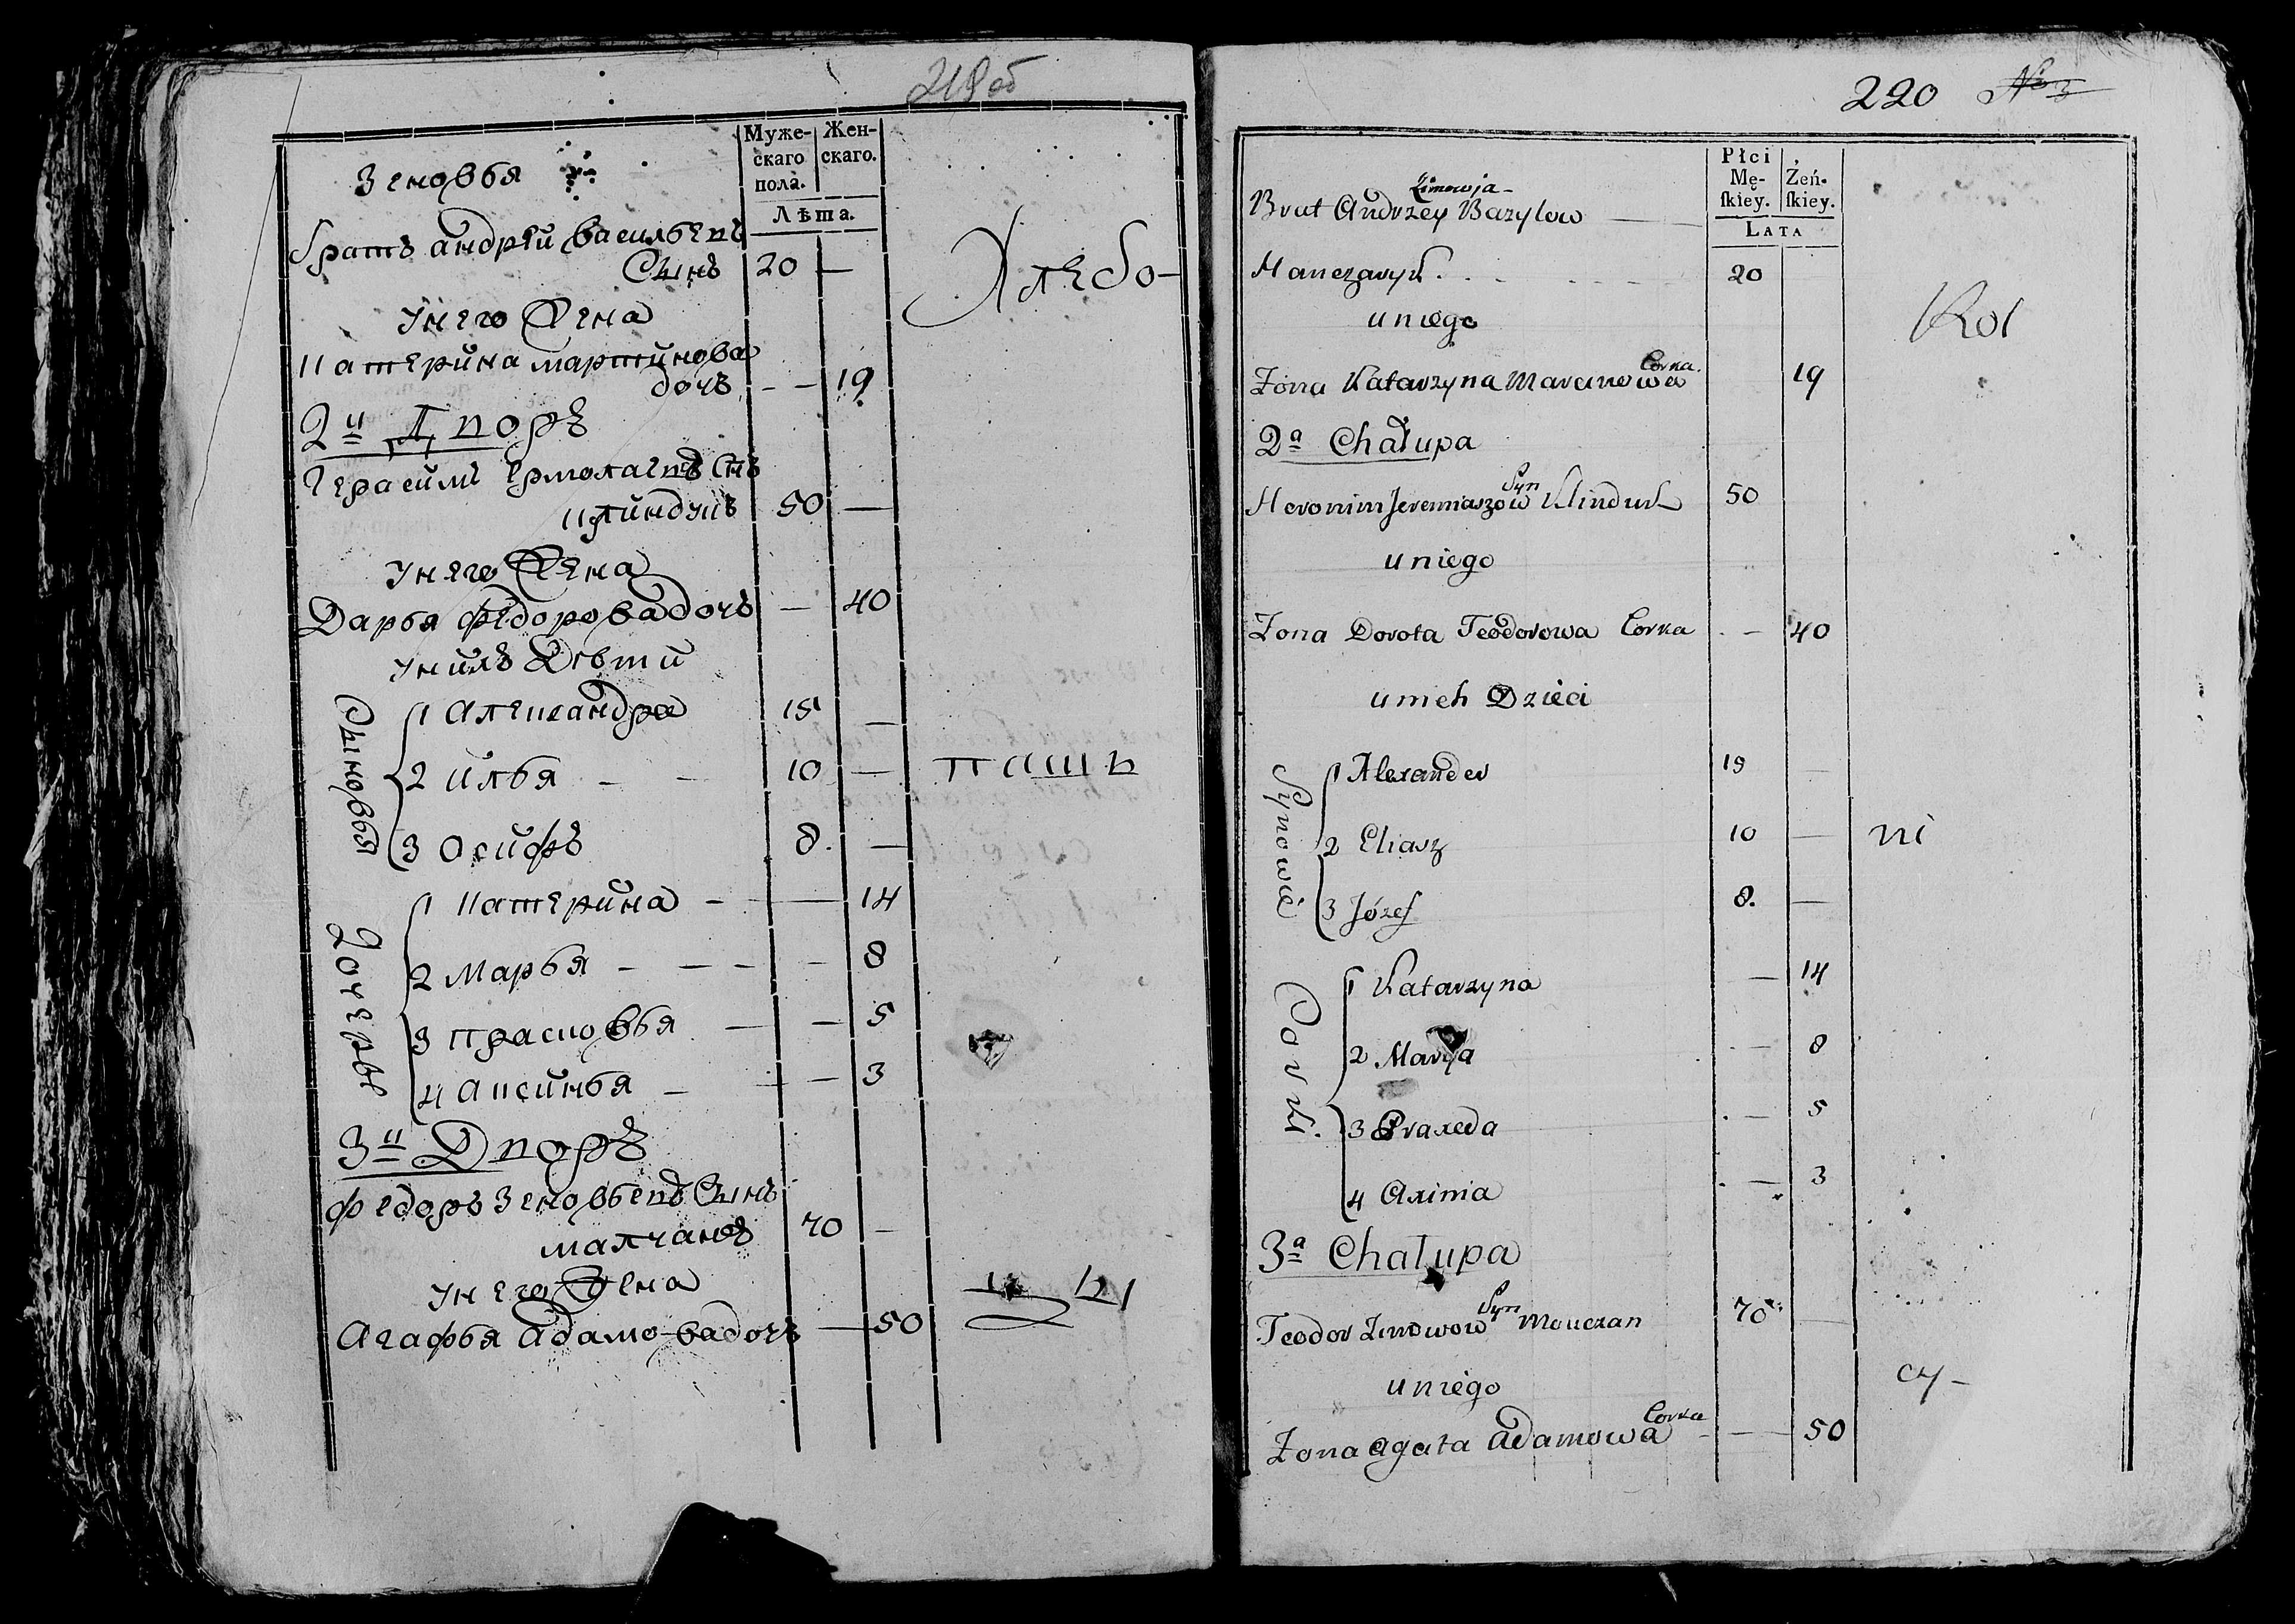 218 об
Муже-
скаго
пола.
Жен-
скаго.
Лѣта.
Зеновья
братъ андрѣй васильевъ
Сынъ 20 —
Унего Жена
Катерина мартинова
дочь — — 19
2й Дворъ
Герасимъ Ермолаевъ Снъ
Клиндукъ 50 —
Унего Жена
Дарья федорова дочь — 40
Унихъ Дѣти
Сыновья
1 Александра 15 —
2 илья — — 10 —
3 Осифъ 8. —
Дочеры
1 Катерина — — 14
2 Марья — — — — 8
3 прасковья — — 5
4 аксинья — — — 3
3й Дворъ
федоръ Зеновьевъ Сынъ
малчанъ 70 —
Унего Жена
Агафья Адамова дочь — 50
Хлебо-
паш
цы
220 No 3
Płci
Mę-
skiey.
Żeń-
skiey.
Lata
Zimowja
Brat Andrzey Bazylow —
Hanczaryk 20
u niego
Corka
Żona Katarzyna Marcinowa 19
2a Chałupa
Syn
Heronim Jeremiaszow Klinduk 50
u niego
Żona Dorota Teodorowa Corka — 40
u nich Dzieci
Synowie
1 Alexander 15 —
2 Eliasz 10 —
3 Józef 8. —
Corki.
1 Katarzyna — 14
2 Marya — 8
3 Praxeda — 5
4 Axinia — 3
3a Chałupa
Syn
Teodor Zinowow Mouczan 70 —
u niego
Corka
Żona Agata Adamowa — — 50
Rol
ni
cy-